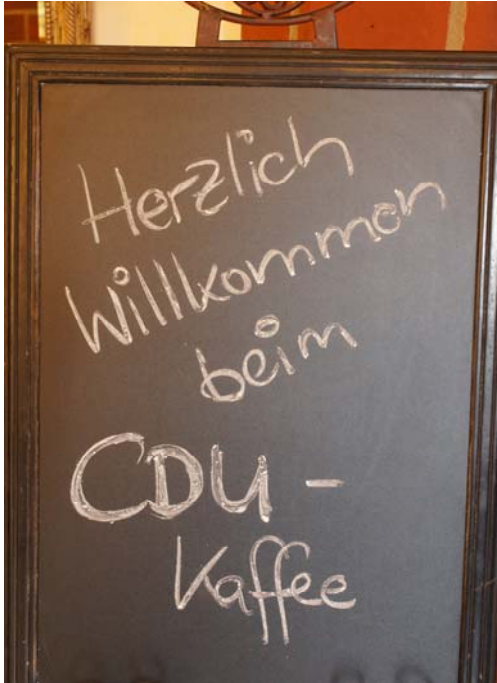 Herzlich
Willkommen
beim
CDU-
Kaffee